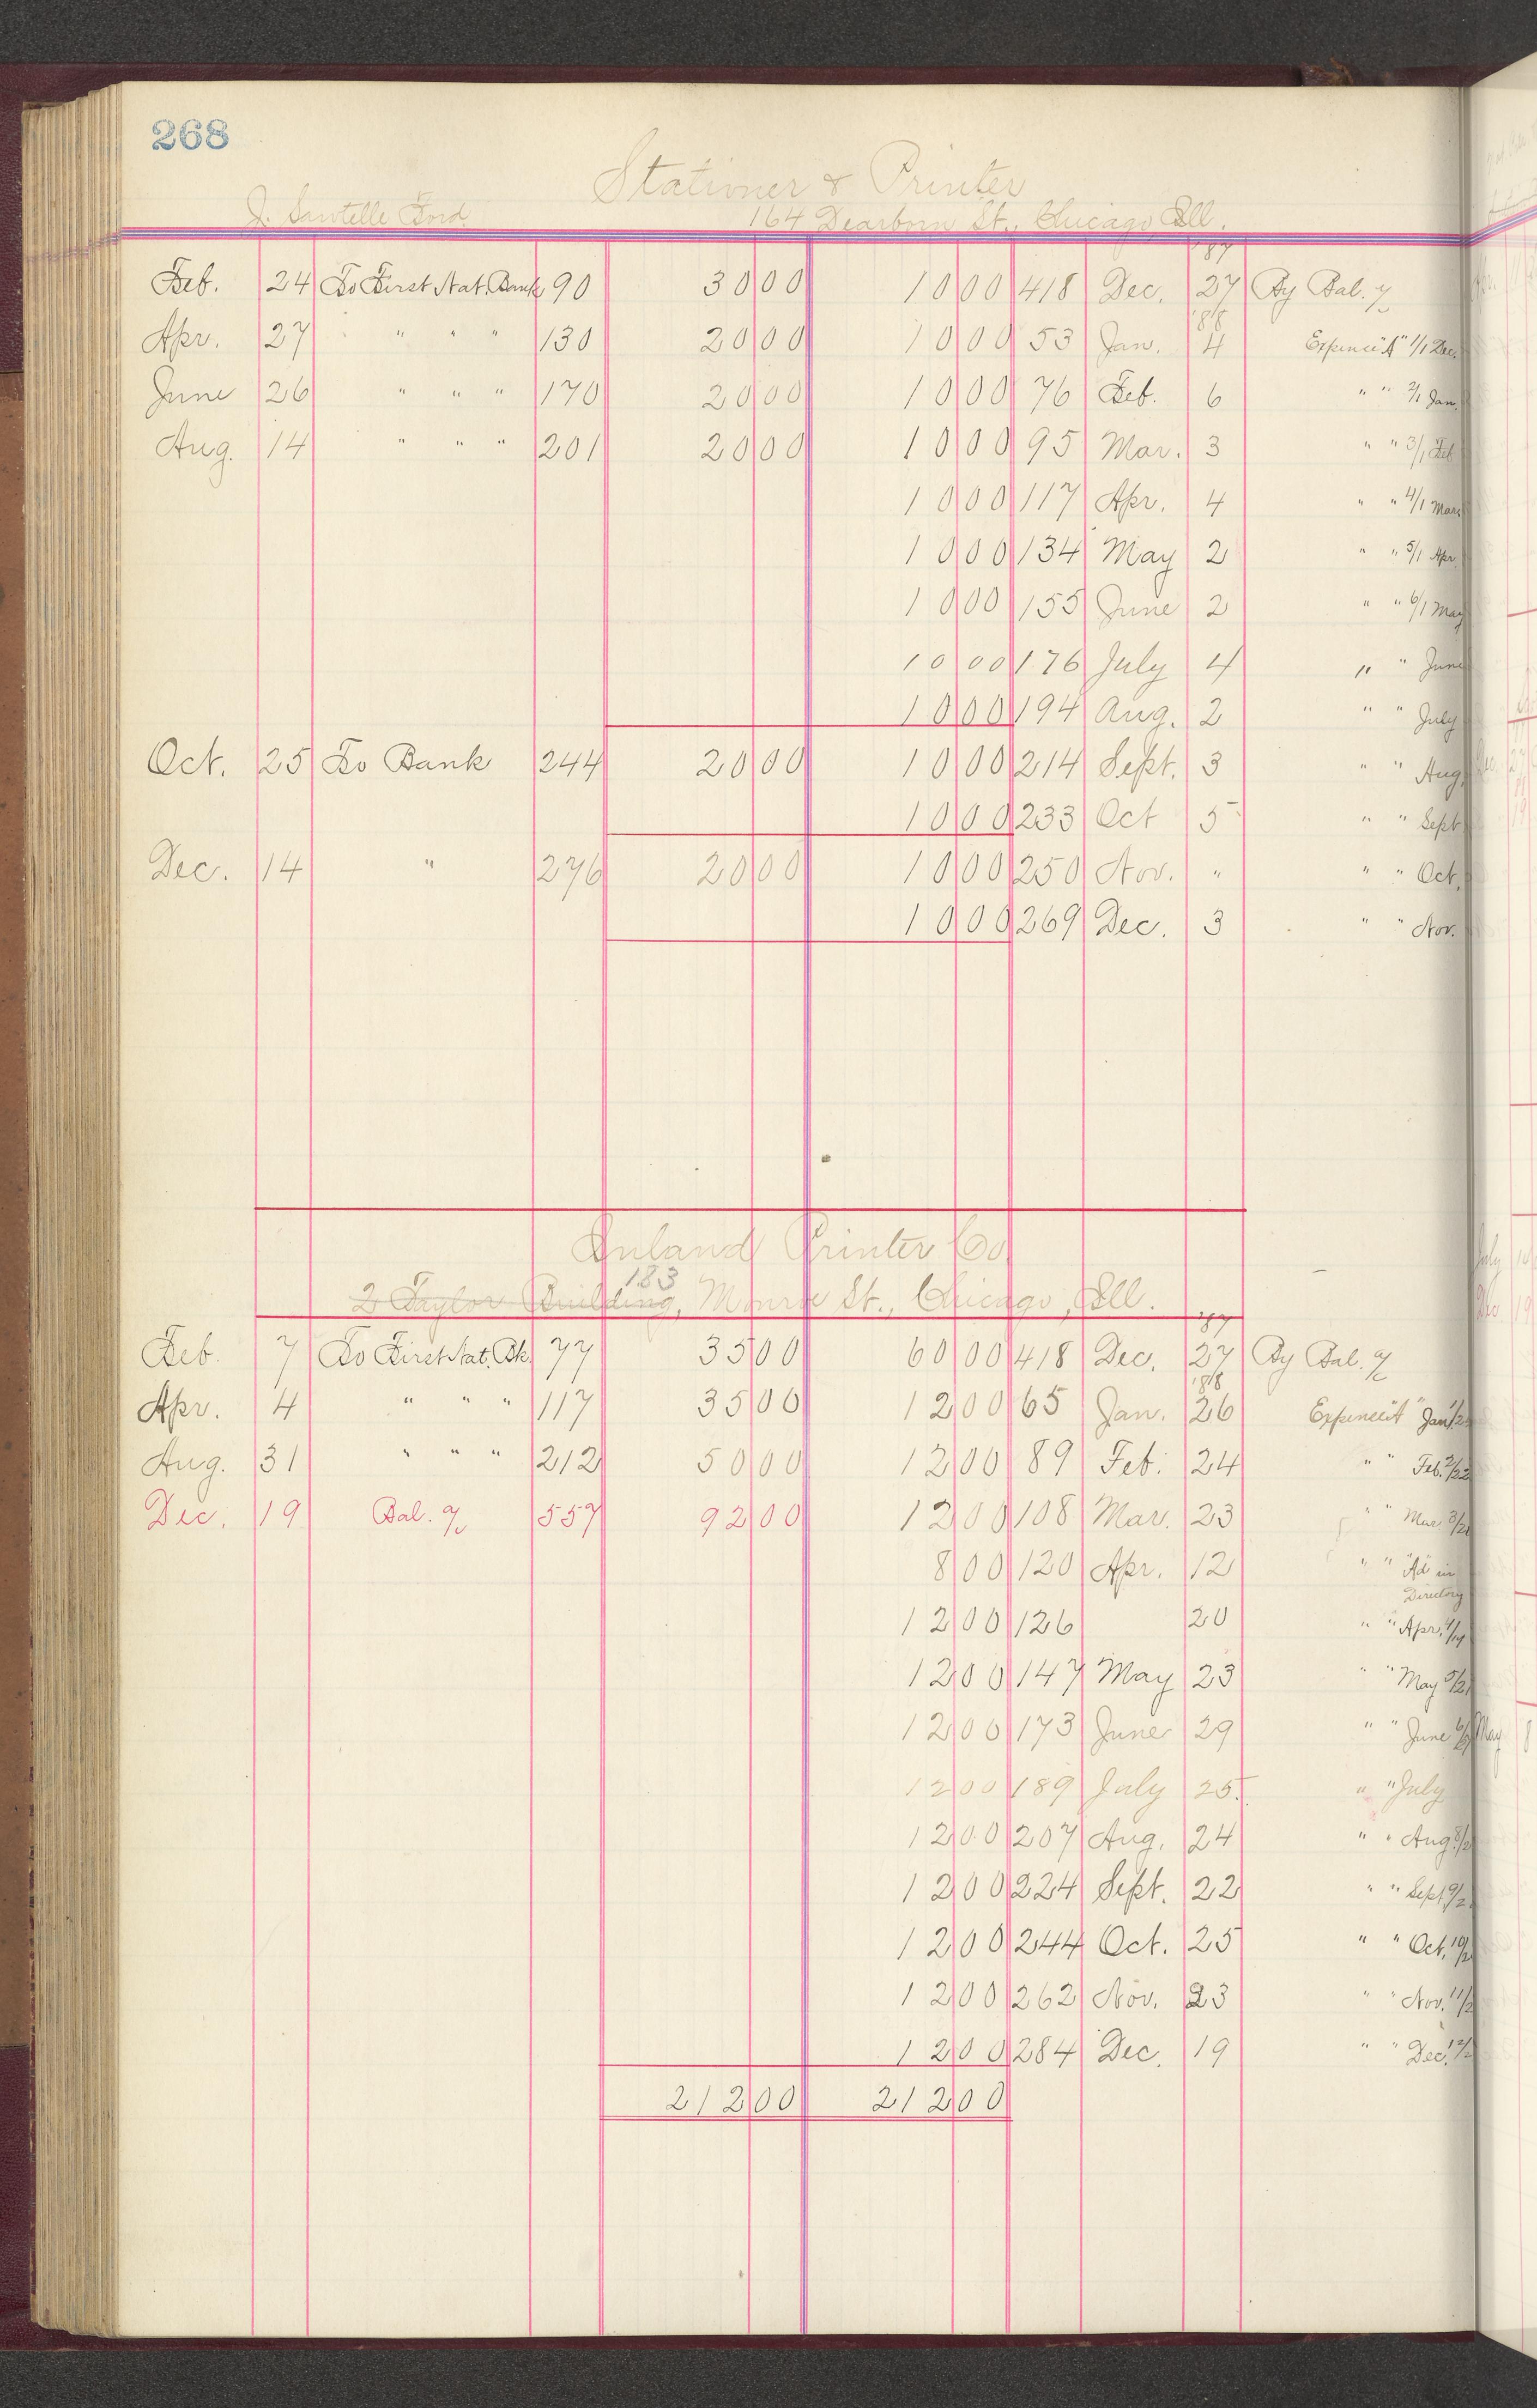 268
Stationer & Printer
J. Sawtelle Ford 164 Dearborn St., Chicago, Ill.
'87
Feb. 24 To First Nat. Bank 90 30 00 10 00 418 Dec. 27 By Bal. %
'88
Apr. 27 " " " 130 20 00 10 00 53 Jan. 4 Expence "A" 1/1 Dec.
June 26 " " " 170 20 00 10 00 76 Feb. 6 " " 2/1 Jan.
Aug. 14 " " " 201 20 00 10 00 95 Mar. 3 " " 3/1 Feb
10 00 117 Apr. 4 " " 4/1 Mar.
10 00 134 May 2 " " 5/1 Apr.
10 00 155 June 2 " " 6/1 May
10 00 176 July 4 " " June
10 00 194 Aug. 2 " " July
Oct. 25 To Bank 244 20 00 10 00 214 Sept. 3 " " Aug.
10 00 233 Oct 5 " " Sept
Dec. 14 " 276 20 00 10 00 250 Nov. " " " Oct.
10 00 269 Dec. 3 " " Nov.
Inland Printer Co
183
2 Taylor Building, Monroe St., Chicago, Ill.
'87
Feb. 7 To First Nat. Bk. 77 35 00 60 00 418 Dec. 27 By Bal. %
'88
Apr. 4 " " " 117 35 00 12 00 65 Jan. 26 Expence "A" Jan
Aug. 31 " " " 212 50 00 12 00 89 Feb. 24 " " Feb. 2/22
Dec. 19 Bal. % 557 92 00 12 00 108 Mar. 23 " " Mar
8 00 120 Apr. 12 " " "Ad" in
Directory
12 00 126 20 " " Apr. 4/19
12 00 147 May 23 " " May
12 00 173 June 29 " " June
12 00 189 July 25. " " July
12 00 207 Aug. 24 " " Aug.
12 00 224 Sept. 22 " " Sept.
12 00 244 Oct. 25 " " Oct.
12 00 262 Nov. 23 " " Nov.
12 00 284 Dec. 19 " " Dec.
212 00 212 00